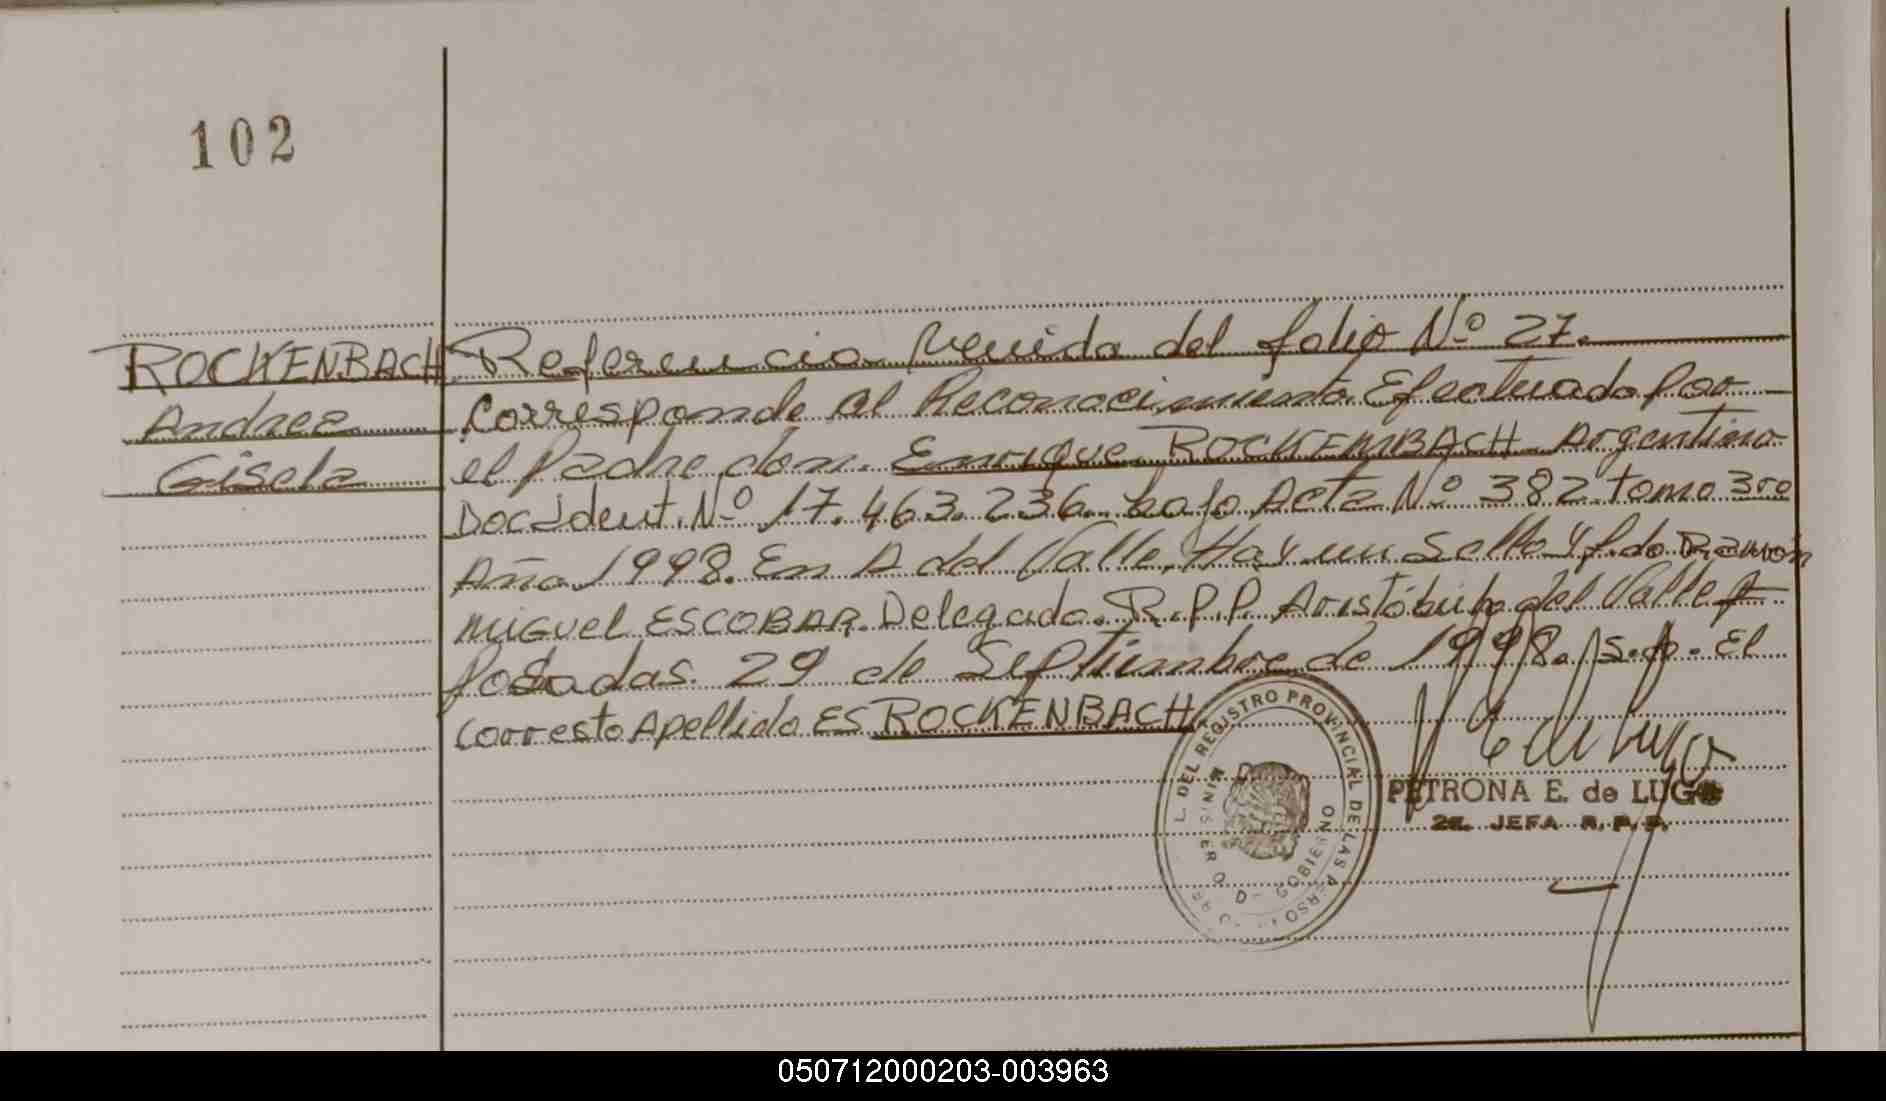 102
ROCKENBACH
Andrea
Gisela
Referencia Venida del folio Nº 27.
Corresponde al Reconocimiento Efectuado Por
el Padre don. Enrique ROCKEMBACH Argentino
Doc Ident. Nº 17.463.236. bajo Acta Nº 382 tomo 3ro
Año 1998. En A del Valle, Hay un Sello y f.do Ramón
MIGUEL ESCOBAR. Delegado. R.P.P. Aristóbulo del Valle
Posadas. 29 de Septiembre de 1998. s.p. El
Corresto Apellido ES ROCKENBACH
L. DEL REGISTRO PROVINCIAL DE LAS PERSO
MINISTER O D GOBIERNO
PETRONA E. de LUGO
2a. JEFA R. P. P.
050712000203-003963